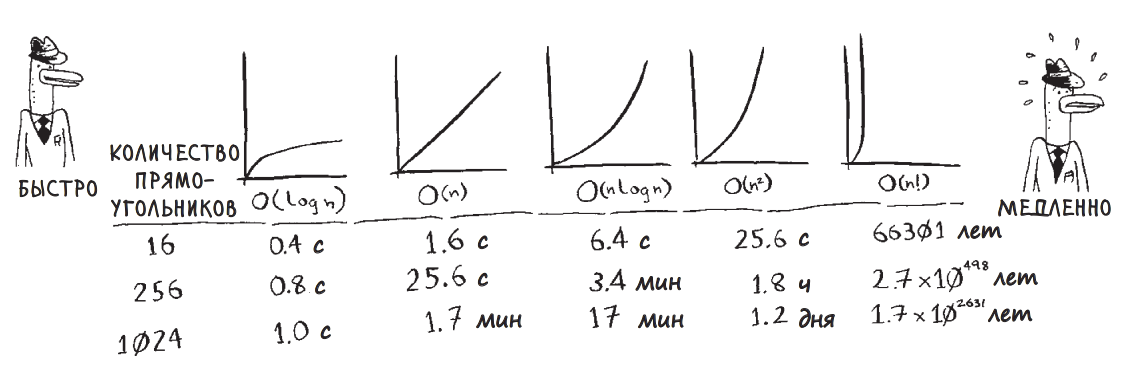 БЫСТРО
МЕДЛЕННО
КОЛИЧЕСТВО
ПРЯМО-
УГОЛЬНИКОВ
O(log n) O(n) O(n log n) O(n²) O(n!)
16 0.4 с 1.6 с 6.4 с 25.6 с 66301 лет
256 0.8 с 25.6 с 3.4 мин 1.8 ч 2.7×10⁴⁹⁸ лет
1024 1.0 с 1.7 мин 17 мин 1.2 дня 1.7×10²⁶³¹ лет